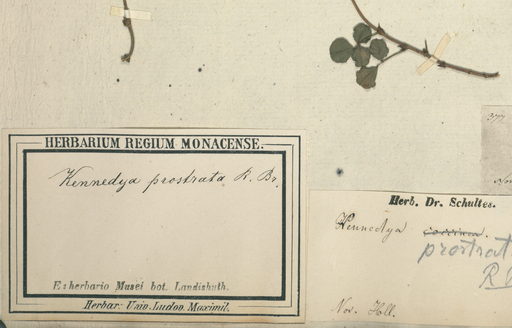 HERBARIUM REGIUM MONACENSE.
Kennedya prostrata R. Br.
Ex herbario Musei bot. Landishuth.
Herbar: Univ. Ludov. Maximil.
Herb. Dr. Schultes.
Kennedya coccinea.
prostrat
R B
Nov. Holl.